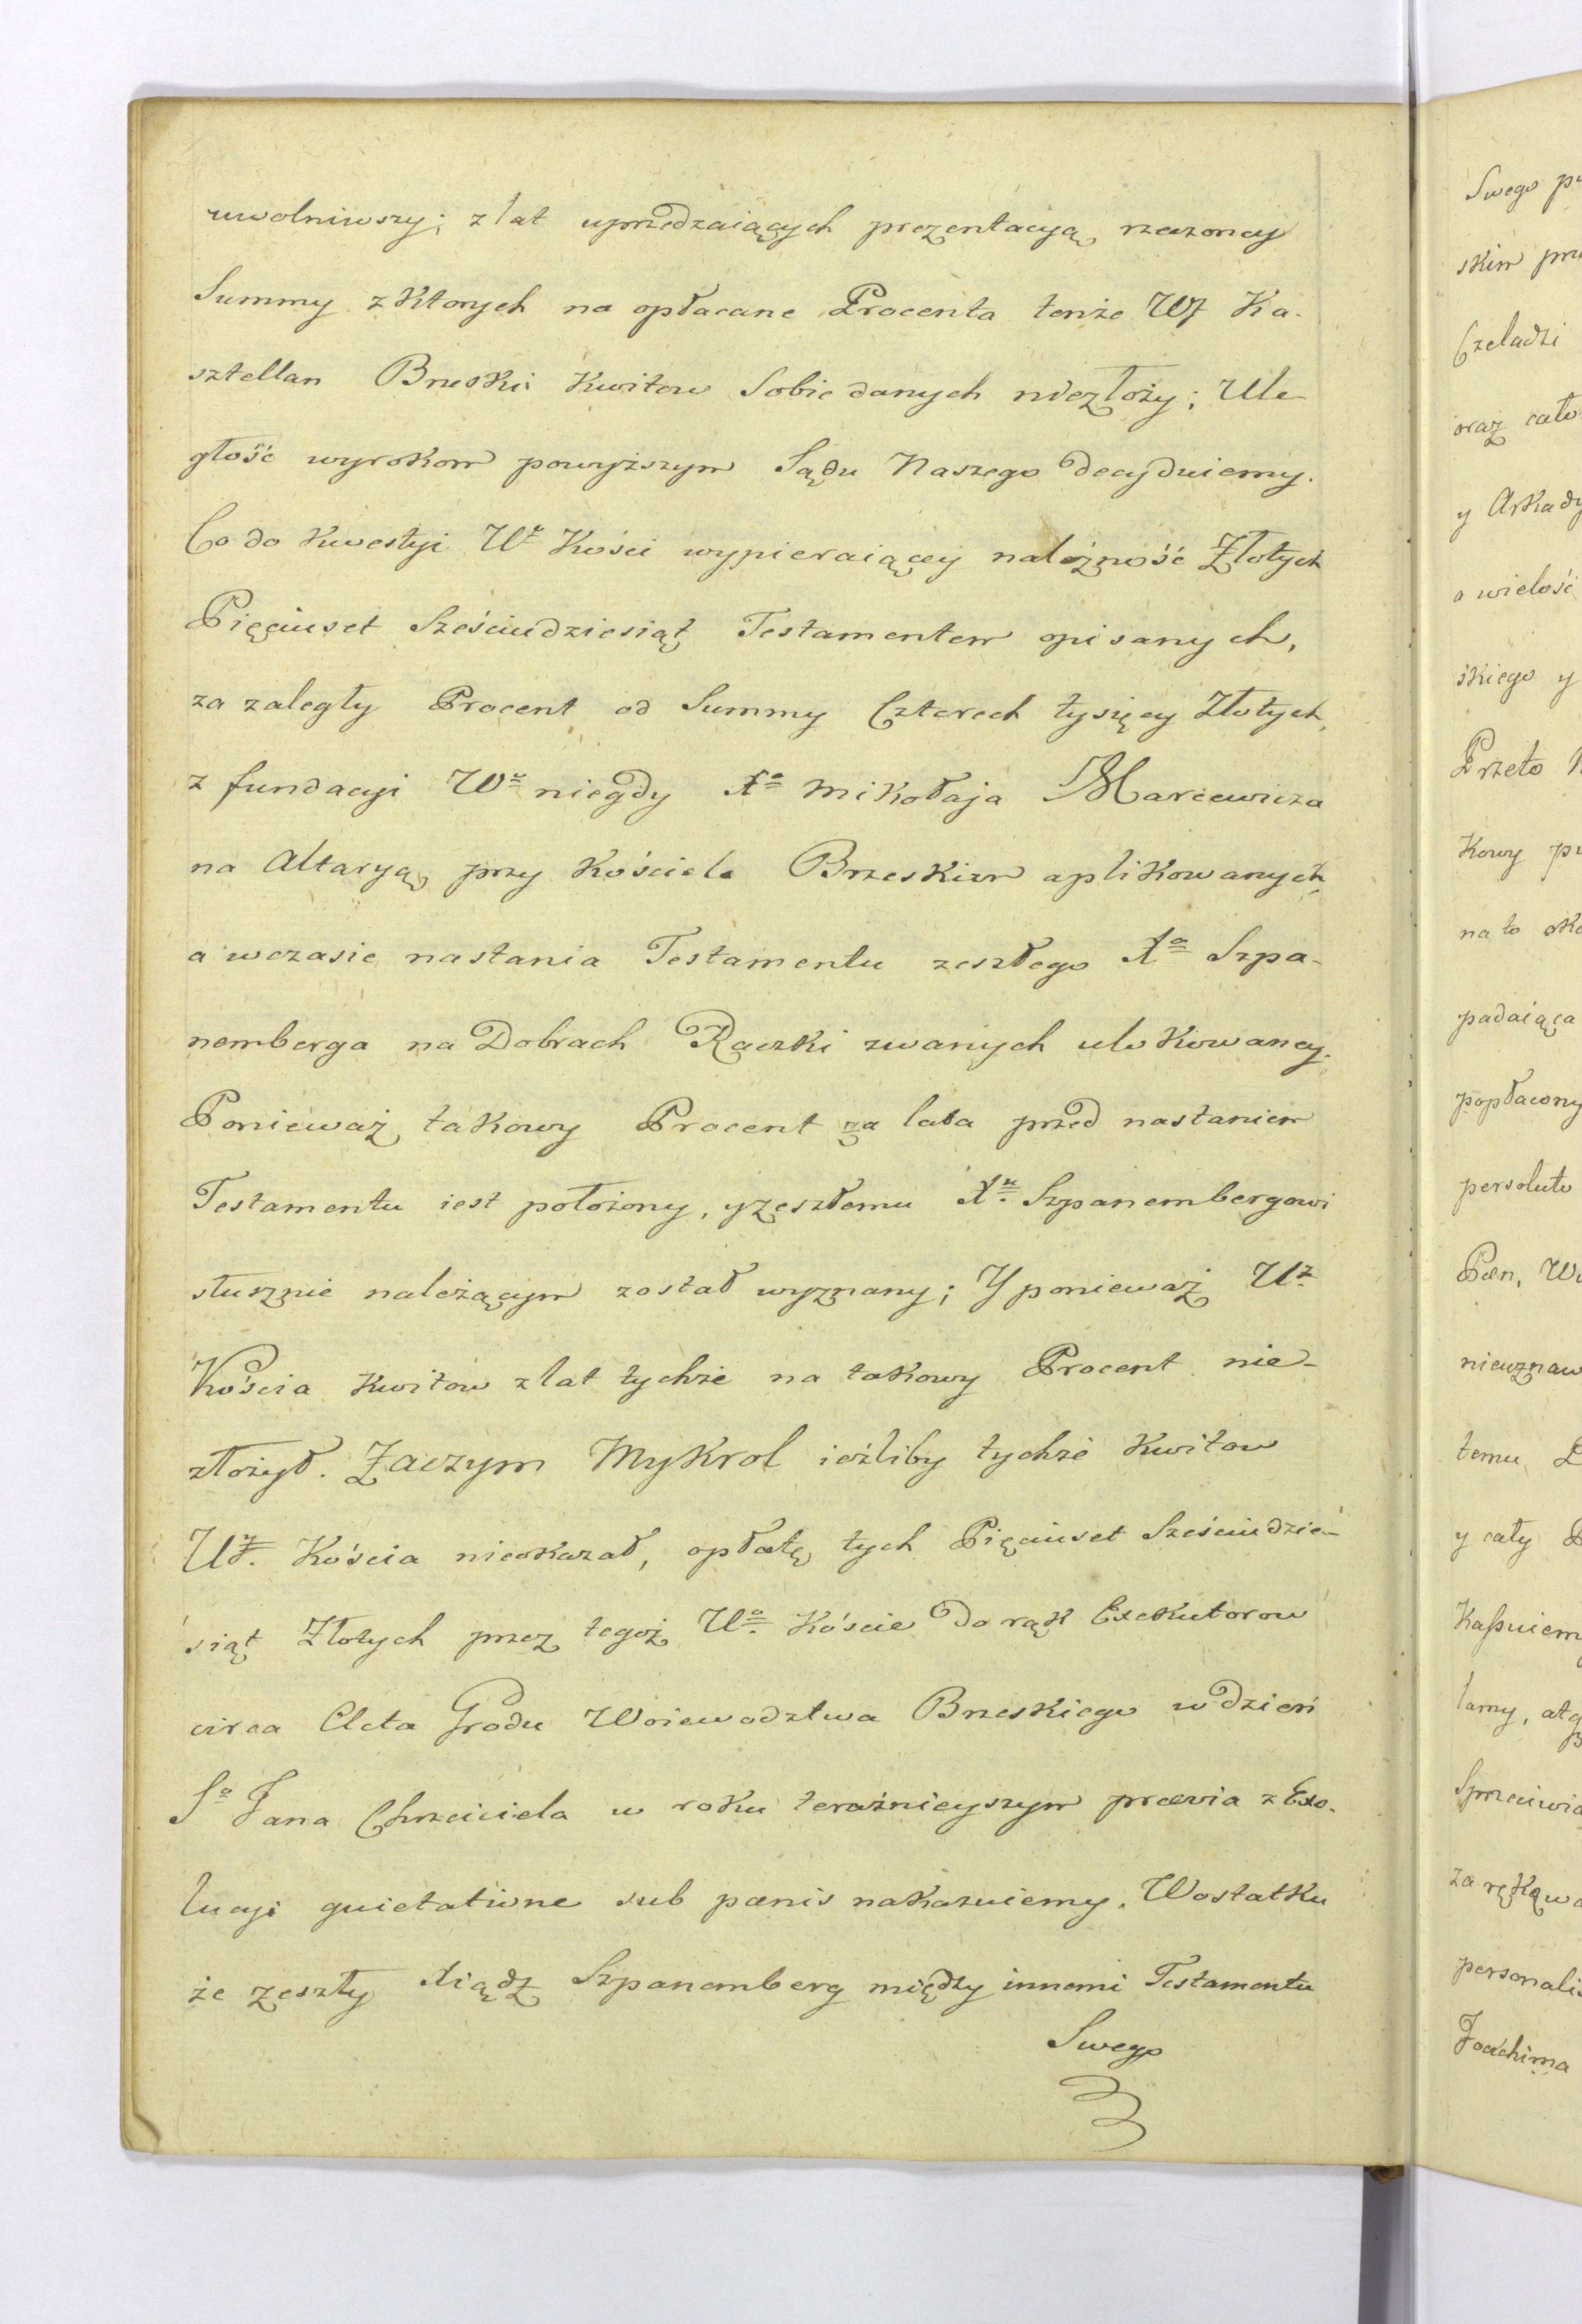 uwolniwszy; z lat uprzedzaiących prezentacyą rzeczoney
Summy z Ktorych na opłacane Procenta tenże WJ Ka-
sztellan Brzeski Kwitow Sobie danych niezłoży; Ule-
głość wyrokom powyższym Sądu Naszego decyduiemy.
Co do Kwestyi Ur Kości wypieraiącey należność Złotych
Pięciuset Sześciudziesiąt Testamentem opisanych,
za zaległy Procent od Summy Czterech tysięcy Złotych,
z fundacyi Wo niegdy Xa Mikołaja Marcewicza
na Altaryą przy Kościele Brzeskim aplikowanych
a wczasie nastania Testamentu zeszłego Xa Szpa-
nemberga na Dobrach Rączki zwanych ulokowaney.
Ponieważ takowy Procent za lata przed nastaniem
Testamentu iest położony, y zeszłemu Xu Szpanembergowi
słusznie należącym został wyznany; Y ponieważ Ur
Kościa Kwitow z lat tychże na takowy Procent nie-
złożył. Zaczym My Krol ieżliby tychże Kwitow
Ur. Kościa nieokazał, opłatę tych Pięciuset Sześciudzie-
siąt Złotych przez tegoż Uo. Kościę do rąk Exekutorow
circa Acta Grodu Woiewodztwa Brzeskiego w dzień
So Jana Chrzciciela w roku teraźnieyszym prævia z Exo-
lucyi quietatione sub pœnis nakazuiemy. Wostatku
że zeszły Xiądz Szpanemberg między innemi Testamentu
Swego
Swego
skim
Czeladzi
oraz cało
y Arkady
a wielość
skiego y
Przeto
Kowy
na to
padaiąca
popłacony
persoluto
Pœn,
nieuznaw
temu
y cały
Kassuiem
lamy,
Sprzeciwia
za ręką
personalis
Joachima